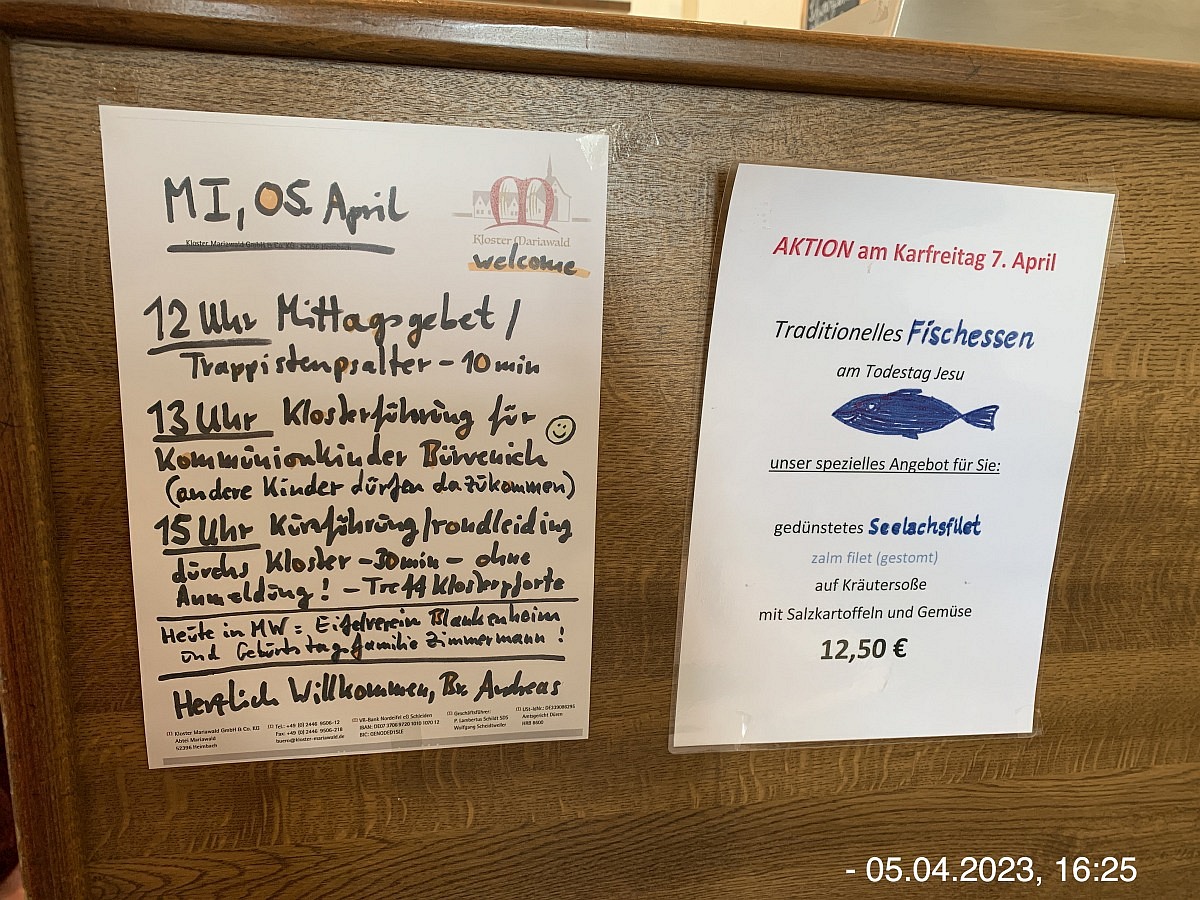 MI, 05. April
Kloster Mariawald
welcome
12 Uhr Mittagsgebet /
Trappistenpsalter - 10 min
13 Uhr Klosterführung für
Kommunionkinder Bürvenich
(andere Kinder dürfen dazukommen)
15 Uhr Kurzführung/rondleiding
durchs Kloster - 30 min - ohne
Anmeldung! - Treff Klosterpforte
Heute in MW: Eifelverein Blankenheim
und Geburtstagsfamilie Zimmermann!
Herzlich Willkommen, Br. Andreas
Kloster Mariawald GmbH & Co. KG
Abtei Mariawald
52396 Heimbach
Tel.: +49 (0) 2446 9506-12
Fax: +49 (0) 2446 9506-218
buero@kloster-mariawald.de
VR-Bank Nordeifel eG Schleiden
BIC: GENODED1SLE
Geschäftsführer:
P. Lambertus Schildt SDS
Wolfgang Scheidtweiler
Amtsgericht Düren
AKTION am Karfreitag 7. April
Traditionelles Fischessen
am Todestag Jesu
unser spezielles Angebot für Sie:
gedünstetes Seelachsfilet
zalm filet (gestomt)
auf Kräutersoße
mit Salzkartoffeln und Gemüse
12,50 €
- 05.04.2023, 16:25